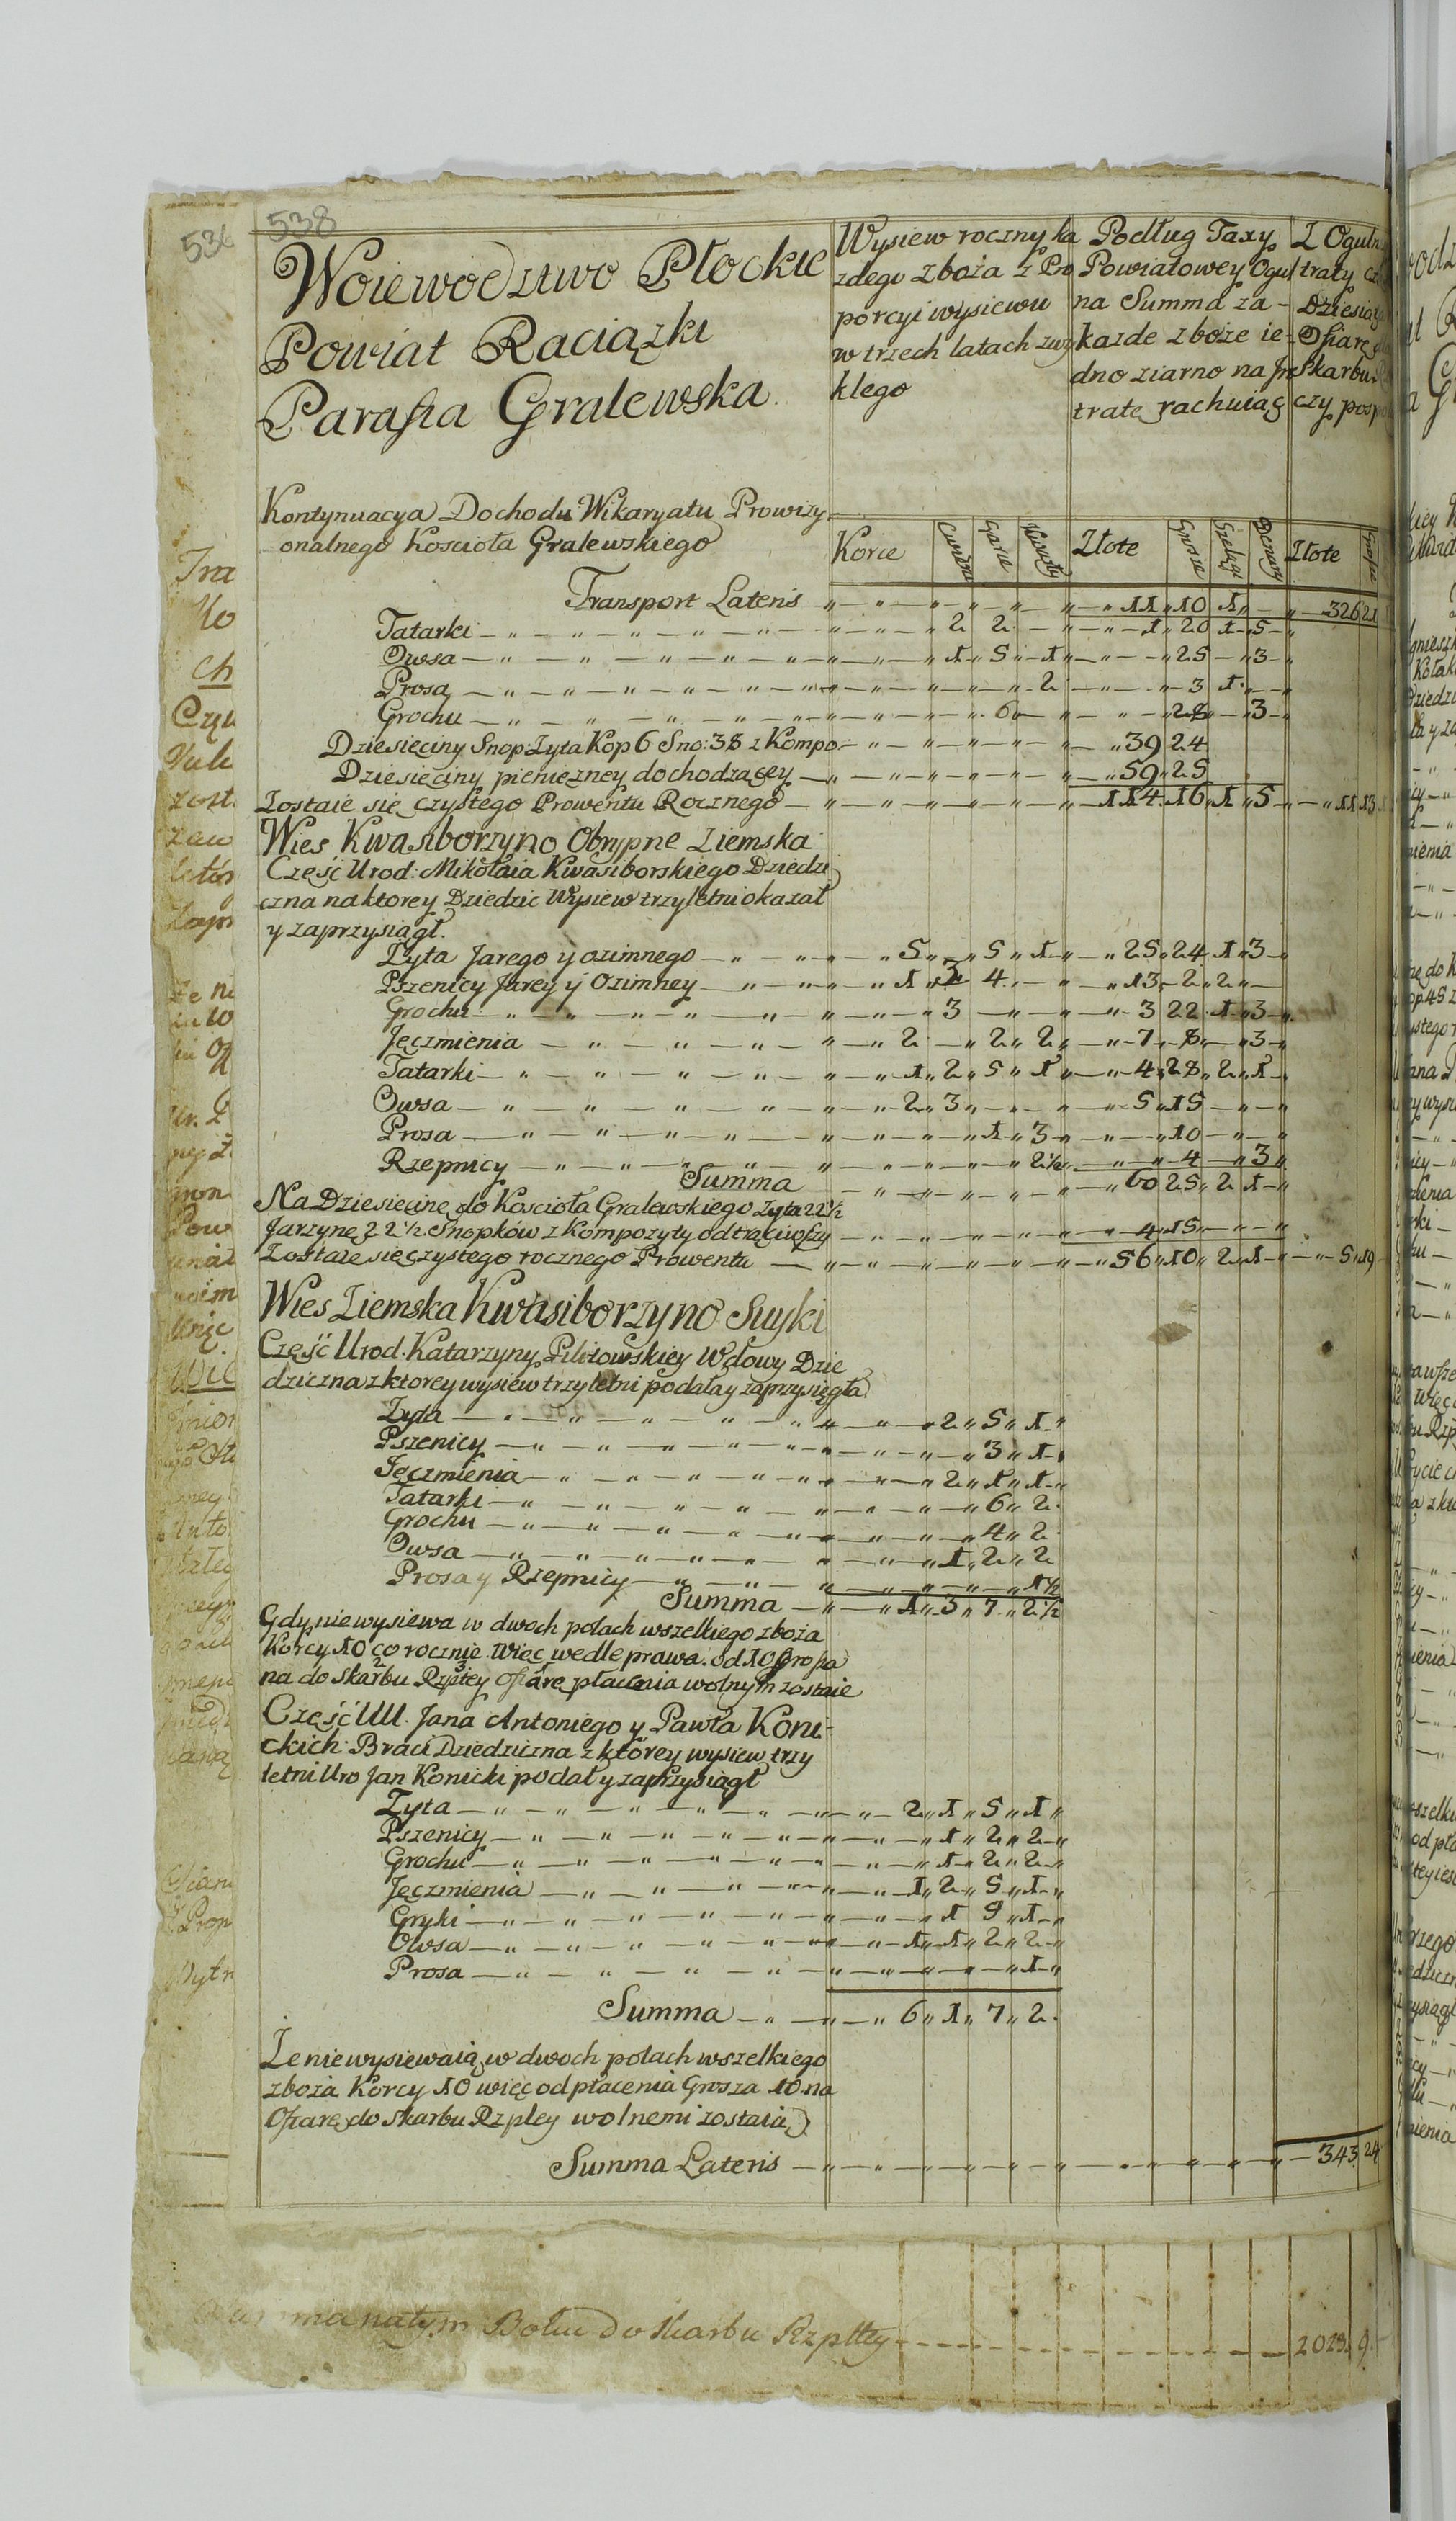 538
536
Woiewodztwo Płockie
Powiat Raciązki
Parafia Gralewska
Wysiew roczny ka
zdego zboża z Pro
porcyi wysiewu
w trzech latach zwy
klego
Podług Taxy
Powiatowey Ogul
na Summa za
kazde zboże ie-
dno ziarno na Jn
tratę rachuiąc
Z Oguln
traty cz
Dziesią
Ofiarę
Skarbu
czy posp
Kontynuacya Dochodu Wikaryatu Prowizy
onalnego Koscioła Gralewskiego
Korce Garce Kwarty Złote Grosze Szelągi Denary Złote Grosze
Transport Lateris 11 10 1 326 21
Tatarki 2 2 1 20 1 5
Owsa 1 5 1 25 3
Prosa 2 3 1
Grochu 6 28 3
Dziesięciny Snop Zyta Kop 6 Sno: 38 z Kompo 39 24
Dziesięciny pienięzney dochodzącey 59 25
Zostaie się czystego Prowentu Rocznego 114 16 1 5 11 13
Wies Kwasiborzyno Obrypne Ziemska
Część Urod: Mikołaia Kwasiborskiego Dziedzi
czna na ktorey Dziedzic Wysiew trzyletni okazał
y zaprzysiągł.
Zyta Jarego y ozimnego 5 5 1 25 24 1 3
Pszenicy Jarey y Ozimney 1 3 4 13 2 2
Grochu 3 3 22 1 3
Jęczmienia 2 2 2 7 8 3
Tatarki 1 2 5 1 4 28 2 1
Owsa 2 3 5 15
Prosa 1 3 10
Rzepnicy 2½ 4 3
Summa 60 25 2 1
Na Dziesięcinę do Koscioła Gralewskiego Zyta 22½
Jarzynę 22½ Snopków z Kompozyty odtrąciwszy 4 15
Zostaie się czystego rocznego Prowentu 56 10 2 1 5 19
Wies Ziemska Kwasiborzyno Suyki
Część Urod. Katarzyny Pilitowskiey Wdowy Dzie
dziczna z ktorey wysiew trzyletni podała y zaprzysięgła
Zyta 2 5 1
Pszenicy 3 1
Jęczmienia 2 1 1
Tatarki 6 2
Grochu 4 2
Owsa 1 2 2
Prosa y Rzepnicy 1½
Summa 1 3 7 2½
Gdy niewysiewa w dwoch polach wszelkiego zboża
Korcy 10 co rocznie. Więc wedle prawa od 10 Grosza
na do Skarbu Rzpltey ofiarę płacenia wolnym zostaie
Część UU. Jana Antoniego y Pawła Koni-
ckich Braci Dziedziczna z którey wysiew trzy
letni Uro Jan Konicki podał y zaprzysiągł
Zyta 2 1 5 1
Pszenicy 1 2 2
Grochu 1 2 2
Jęczmienia 1 2 5 1
Gryki 1 9 1
Owsa 1 1 2 2
Prosa 1
Summa 6 1 7 2
Ze niewysiewaią w dwoch polach wszelkiego
zboża Korcy 10 więc od płacenia Grosza 10 na
Ofiarę do Skarbu Rzpley wolnemi zostaią
Summa Lateris 343 24
na tym Boku do Skarbu Rzpltey 2029 9